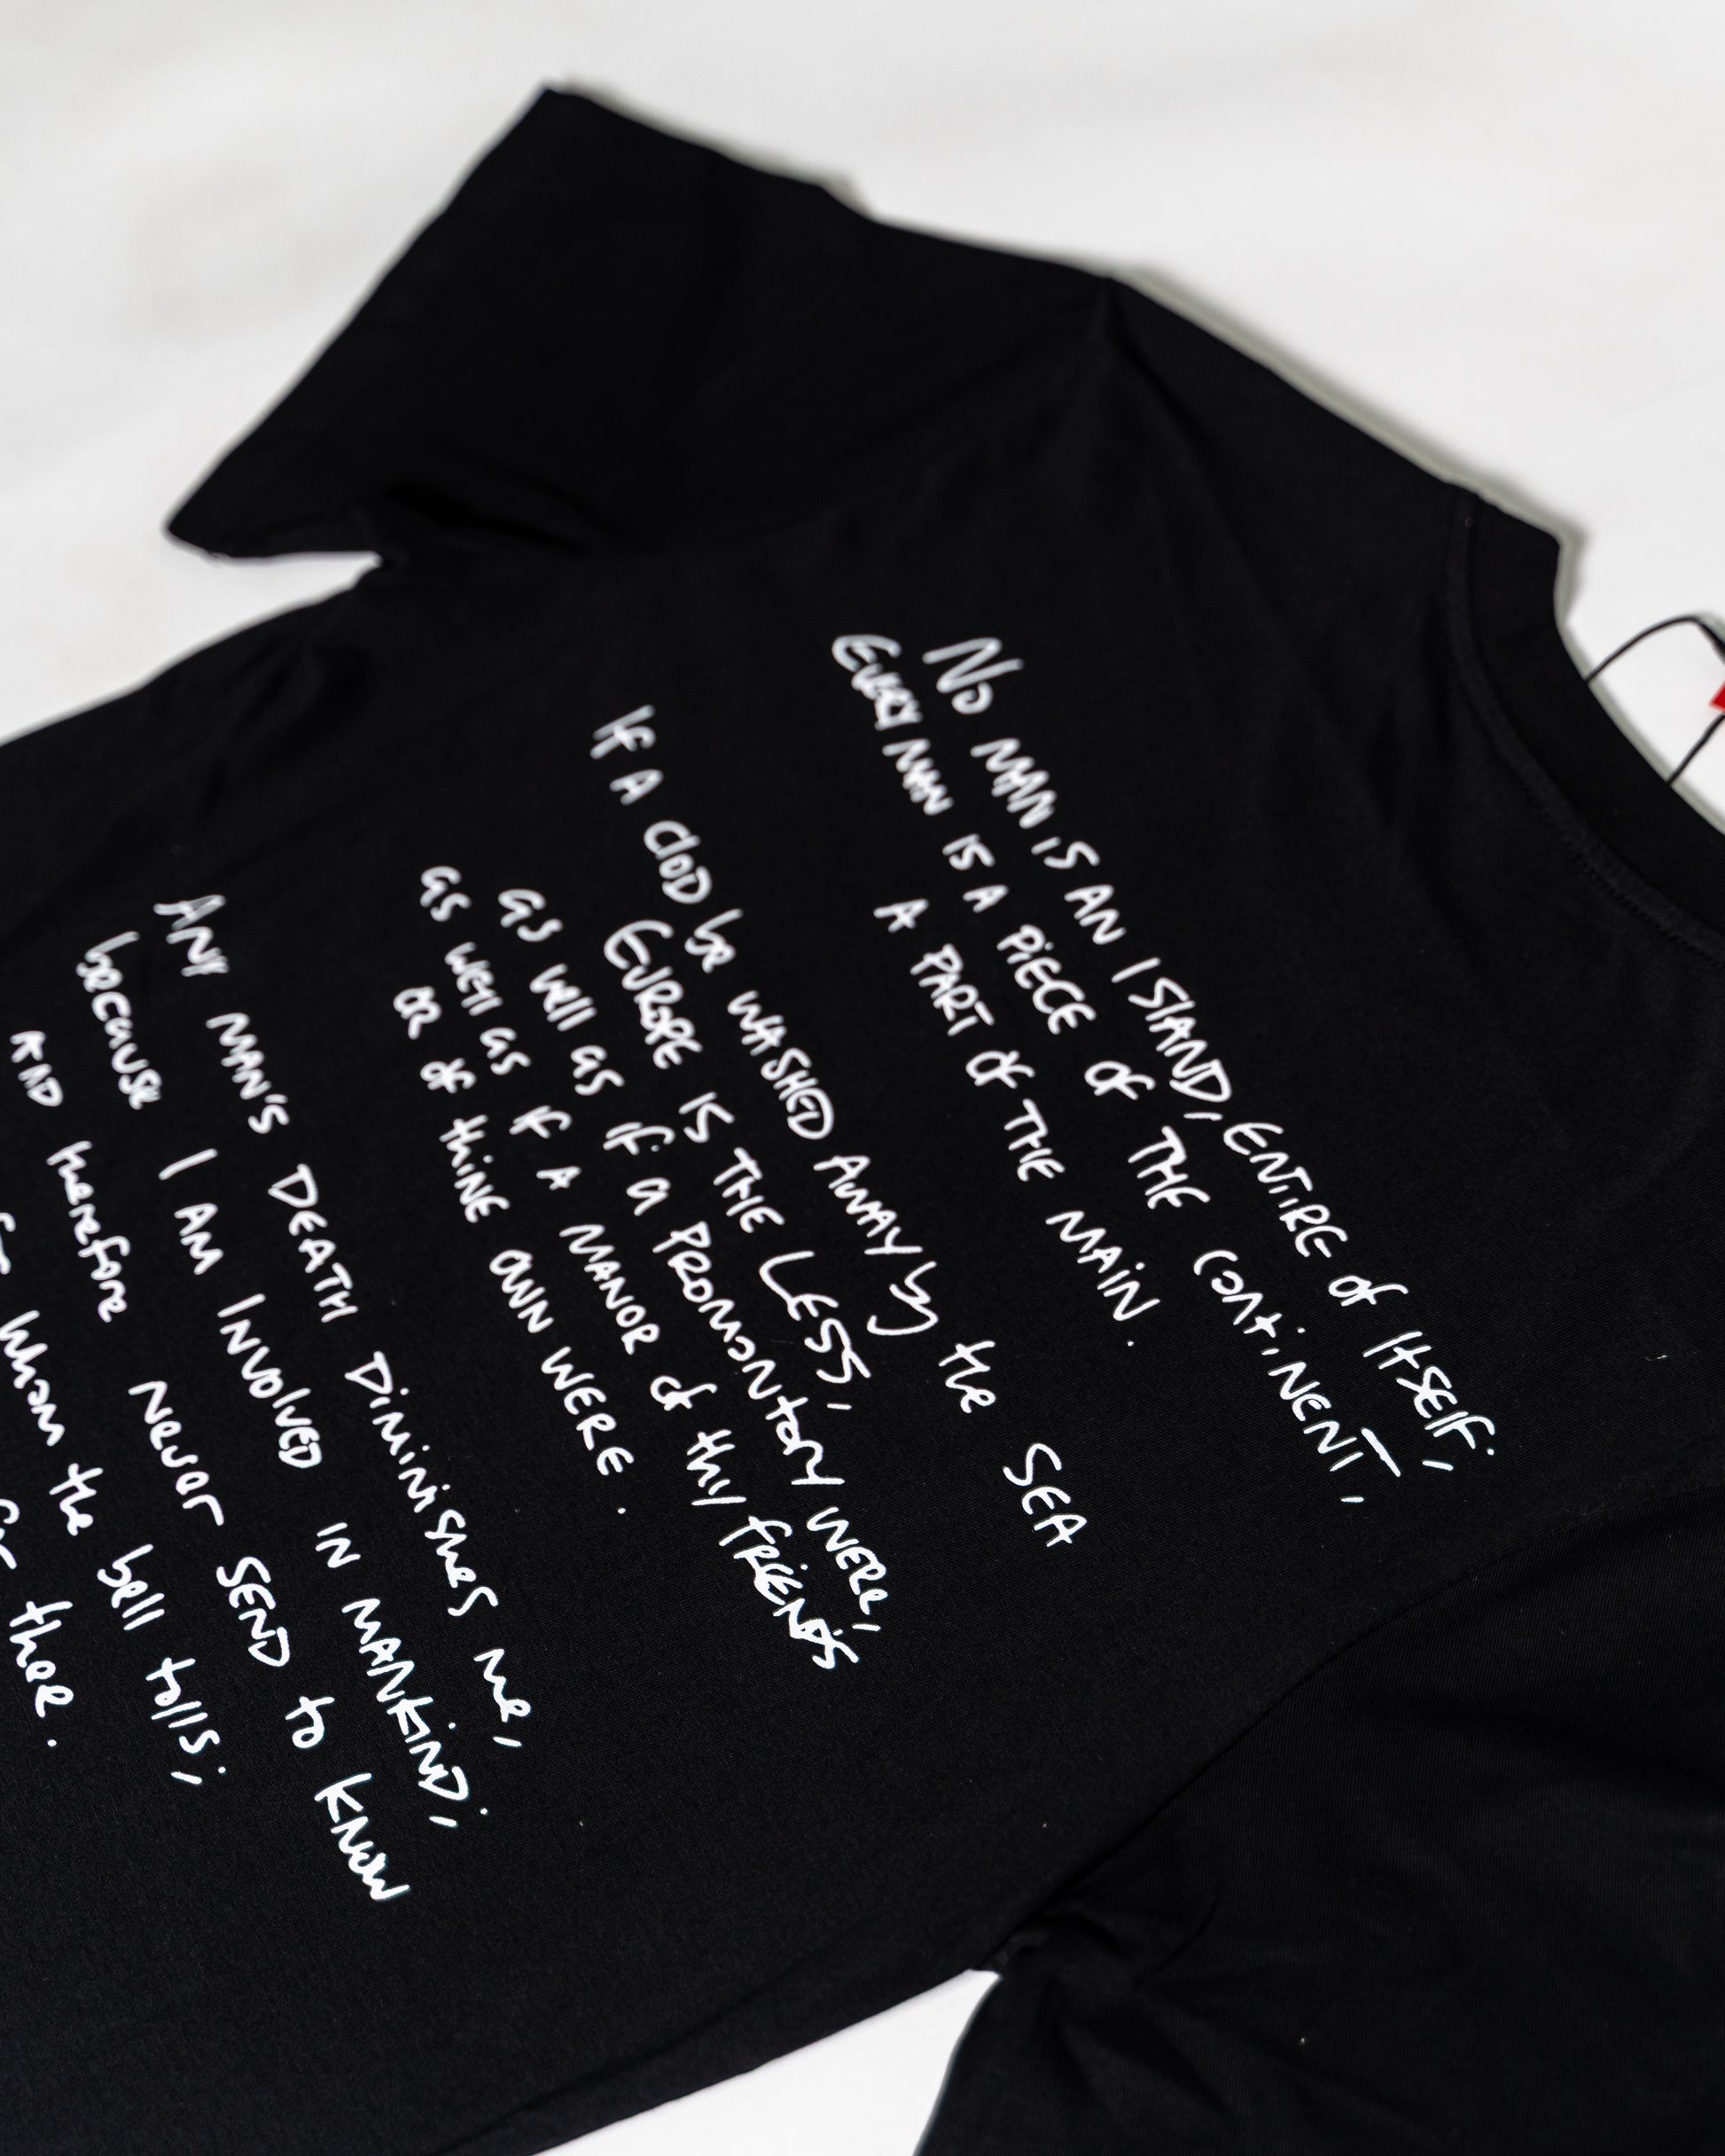 No MAN is AN ISlAND, ENTiRE of ItSElf;
EVERY MAN IS A PiECE of THE CONtiNENT,
A PART of THE MAiN.
If A clOD be WASHED AWAY by the SEA
EUROPE IS THE LESS,
as well as if a PROMONTORY WERE,
as well as if A MANOR of thy fRiENDS
OR of thiNE OWN WERE.
ANY MAN'S DEATH DiMiNiSHES me,
because I AM INVOlVED IN MANKiND;
AND therefore NEVER SEND to KNOW
whom the bell tolls;
thee.